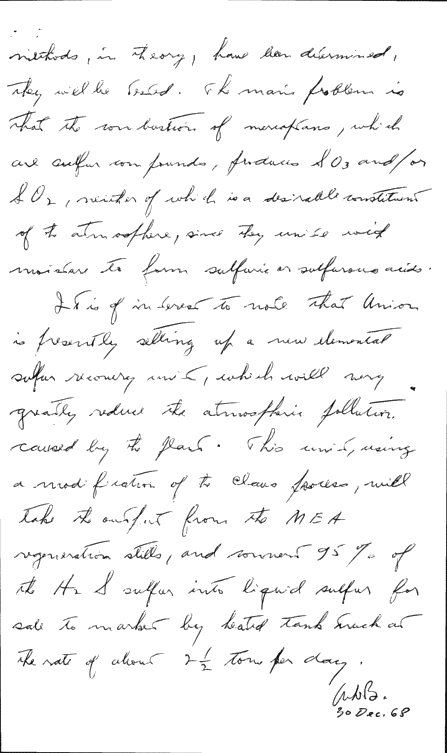 methods, in theory, have been determined,
they will be tested. The main problem is
that the combustion of mercaptans, which
are sulfur compounds, produces SO3 and/or
SO2, neither of which is a desirable constituent
of the atmosphere, since they unite with
moisture to form sulfuric or sulfurous acids.
It is of interest to note that Union
is presently setting up a new elemental
sulfur recovery unit, which will very
greatly reduce the atmospheric pollution
caused by the plant. This unit, using
a modification of the Claus process, will
take the output from the MEA
regeneration stills, and convert 95% of
the H2S sulfur into liquid sulfur for
sale to market by heated tank truck at
the rate of about 2 1/2 tons per day.
30 Dec. 68